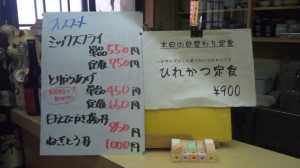 オススメ
ミックスフライ
単品 550円
定食 750円
とりからあげ
単品 450円
定食 650円
850円
ねぎとろ丼 1000円
本日の日替わり定食
ひれかつ定食
¥900